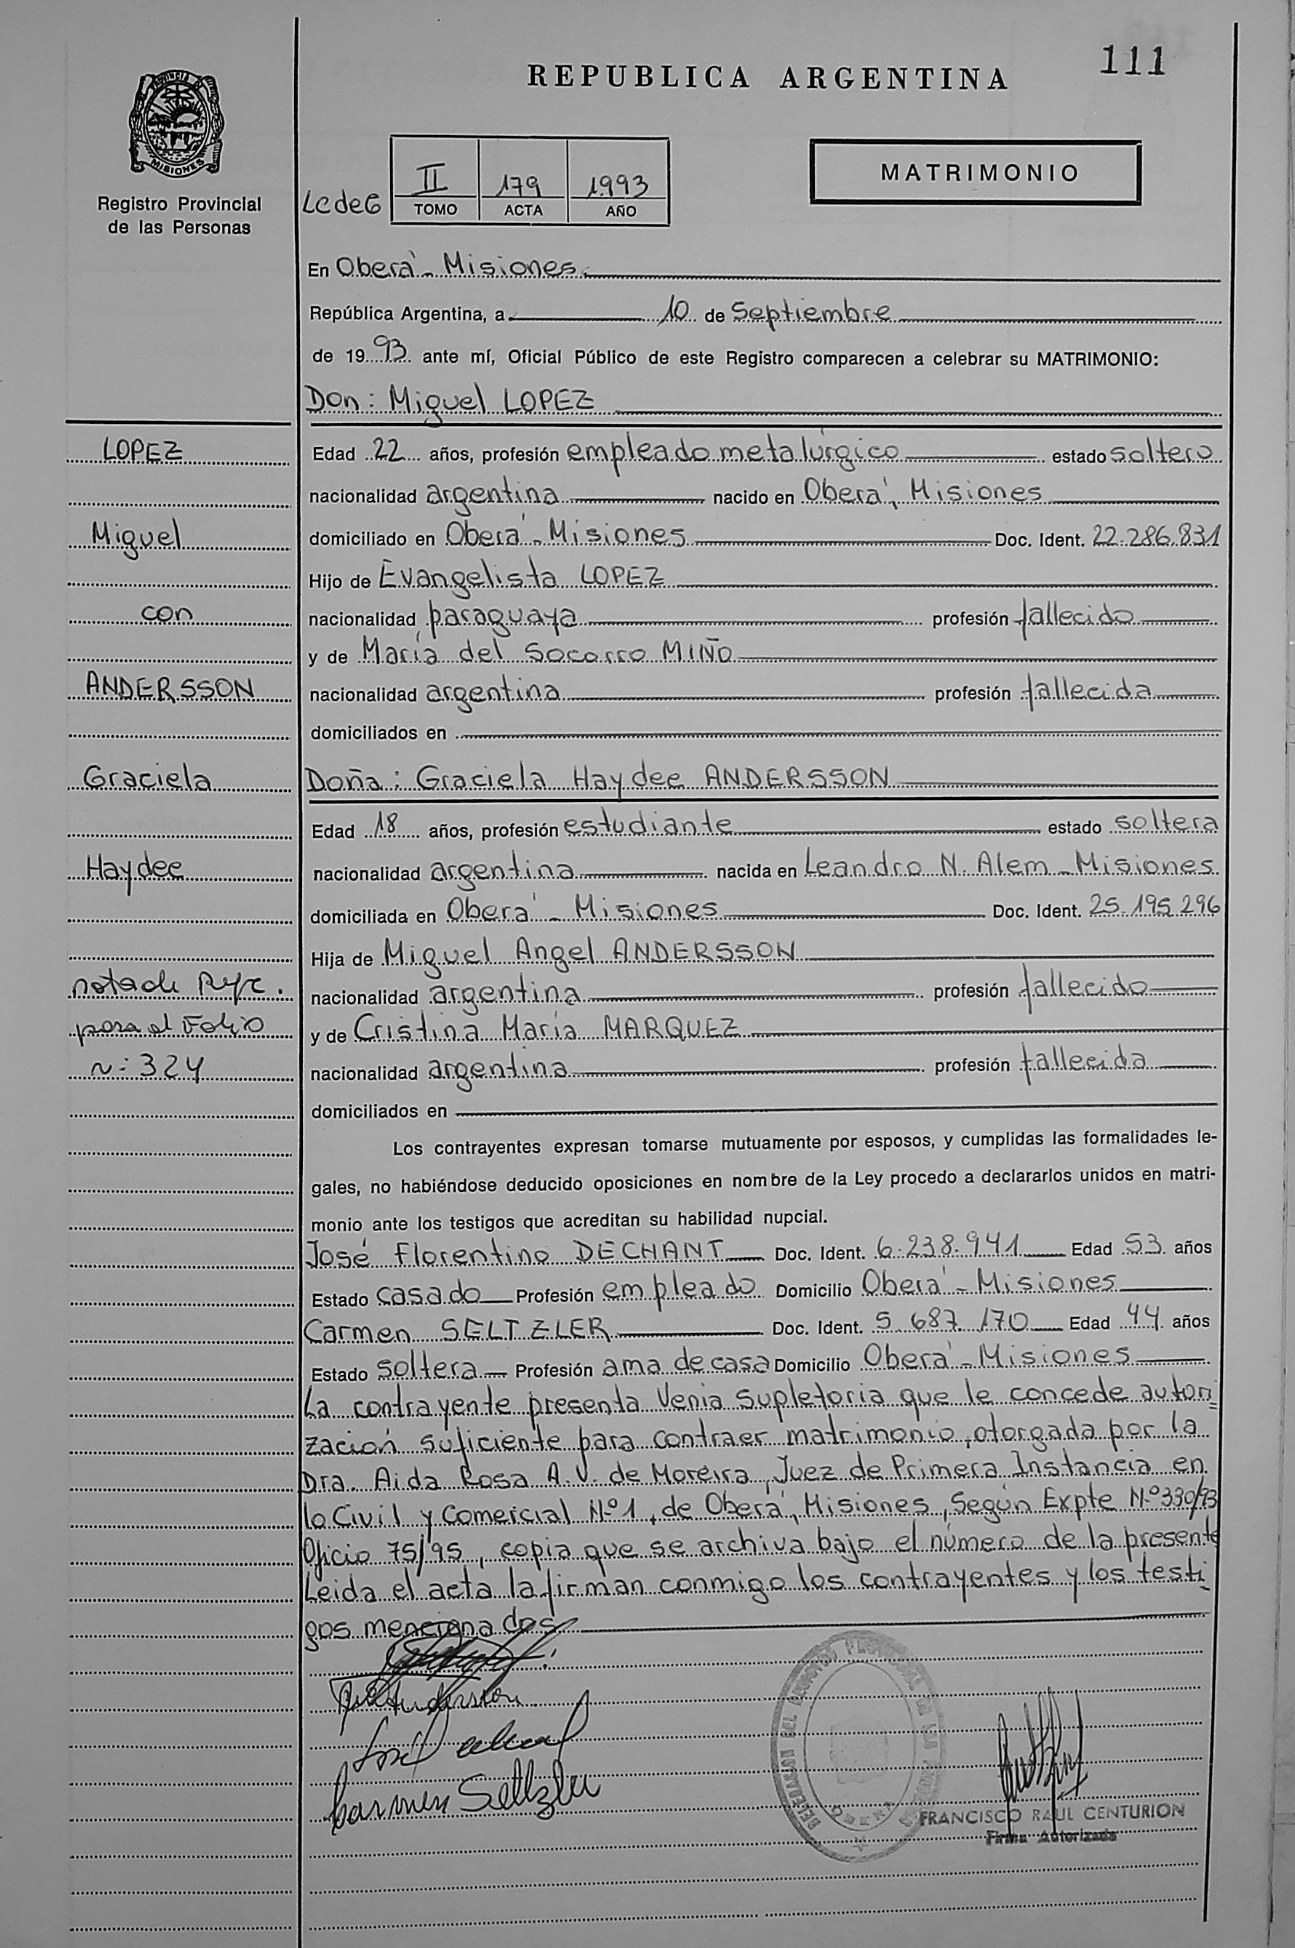 111
REPUBLICA ARGENTINA
PROVINCIA DE MISIONES
Registro Provincial
de las Personas
LcdeG
II 179 1993
TOMO ACTA AÑO
MATRIMONIO
En Oberá - Misiones.
República Argentina, a 10 de Septiembre
de 1993 ante mí, Oficial Público de este Registro comparecen a celebrar su MATRIMONIO:
Don: Miguel LOPEZ
LOPEZ
Miguel
con
ANDERSSON
Graciela
Haydee
nota de
para el Folio
n: 324
Edad 22 años, profesión empleado metalúrgico estado soltero
nacionalidad argentina nacido en Oberá, Misiones
domiciliado en Oberá - Misiones Doc. Ident. 22.286.831
Hijo de Evangelista LOPEZ
nacionalidad paraguaya profesión fallecido
y de María del Socorro MIÑO
nacionalidad argentina profesión fallecida
domiciliados en
Doña: Graciela Haydee ANDERSSON
Edad 18 años, profesión estudiante estado soltera
nacionalidad argentina nacida en Leandro N. Alem - Misiones
domiciliada en Oberá - Misiones Doc. Ident. 25.195.296
Hija de Miguel Angel ANDERSSON
nacionalidad argentina profesión fallecido
y de Cristina María MARQUEZ
nacionalidad argentina profesión fallecida
domiciliados en
Los contrayentes expresan tomarse mutuamente por esposos, y cumplidas las formalidades le-
gales, no habiéndose deducido oposiciones en nombre de la Ley procedo a declararlos unidos en matri-
monio ante los testigos que acreditan su habilidad nupcial.
José Florentino DECHANT Doc. Ident. 6.238.941 Edad 53 años
Estado casado Profesión empleado Domicilio Oberá - Misiones
Carmen SELTZLER Doc. Ident. 5.687.170 Edad 44 años
Estado soltera Profesión ama de casa Domicilio Oberá - Misiones
La contrayente presenta Venia Supletoria que le concede autori-
zación suficiente para contraer matrimonio, otorgada por la
Dra. Aida Rosa A.V. de Moreira, Juez de Primera Instancia en
lo Civil y Comercial Nº1, de Oberá, Misiones, Según Expte Nº330/93
Oficio 75/95, copia que se archiva bajo el número de la presente
Leida el acta la firman conmigo los contrayentes y los testi-
gos mencionados
Carmen Seltzler
DELEGACION DEL REGISTRO PROVINCIAL DE LAS PERSONAS
OBERA
FRANCISCO RAUL CENTURION
Firma Autorizada